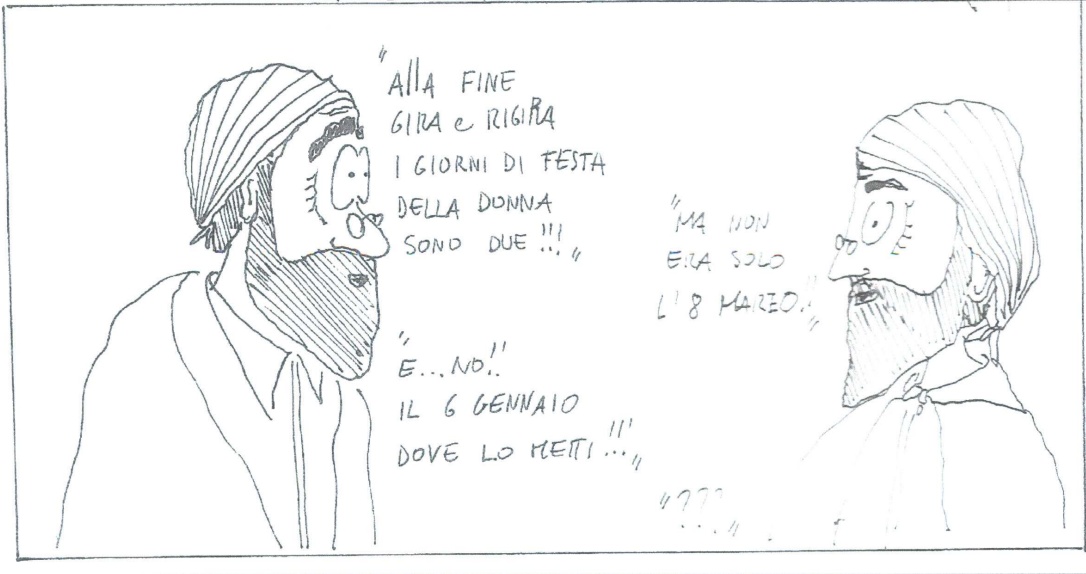 "Alla FINE
GIRA e RIGIRA
I GIORNI DI FESTA
DELLA DONNA
SONO DUE!!!"
"MA NON
ERA SOLO
L'8 MARZO!"
"E...NO!!
IL 6 GENNAIO
DOVE LO METTI...!!!"
"???"